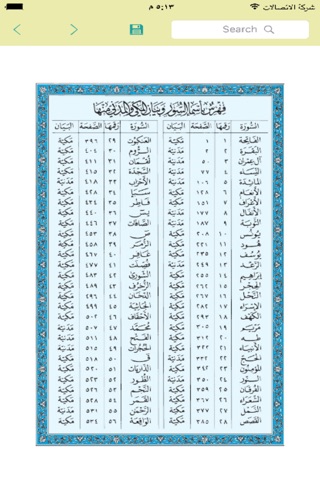 شركة الاتصالات ٥:١٣ م
Search
فهرس بأسماء السور وبيان المكي والمدني منها
السورة رقمها الصفحة البيان السورة رقمها الصفحة البيان
الفاتحة ١ ١ مكية العنكبوت ٢٩ ٣٩٦ مكية
البقرة ٢ ٢ مدنية الروم ٣٠ ٤٠٤ مكية
آل عمران ٣ ٥٠ مدنية لقمان ٣١ ٤١١ مكية
النساء ٤ ٧٧ مدنية السجدة ٣٢ ٤١٥ مكية
المائدة ٥ ١٠٦ مدنية الأحزاب ٣٣ ٤١٨ مدنية
الأنعام ٦ ١٢٨ مكية سبأ ٣٤ ٤٢٨ مكية
الأعراف ٧ ١٥١ مكية فاطر ٣٥ ٤٣٤ مكية
الأنفال ٨ ١٧٧ مدنية يس ٣٦ ٤٤٠ مكية
التوبة ٩ ١٨٧ مدنية الصافات ٣٧ ٤٤٦ مكية
يونس ١٠ ٢٠٨ مكية ص ٣٨ ٤٥٣ مكية
هود ١١ ٢٢١ مكية الزمر ٣٩ ٤٥٨ مكية
يوسف ١٢ ٢٣٥ مكية غافر ٤٠ ٤٦٧ مكية
الرعد ١٣ ٢٤٩ مدنية فصلت ٤١ ٤٧٧ مكية
إبراهيم ١٤ ٢٥٥ مكية الشورى ٤٢ ٤٨٣ مكية
الحجر ١٥ ٢٦٢ مكية الزخرف ٤٣ ٤٨٩ مكية
النحل ١٦ ٢٦٧ مكية الدخان ٤٤ ٤٩٦ مكية
الإسراء ١٧ ٢٨٢ مكية الجاثية ٤٥ ٤٩٩ مكية
الكهف ١٨ ٢٩٣ مكية الأحقاف ٤٦ ٥٠٢ مكية
مريم ١٩ ٣٠٥ مكية محمد ٤٧ ٥٠٧ مدنية
طه ٢٠ ٣١٢ مكية الفتح ٤٨ ٥١١ مدنية
الأنبياء ٢١ ٣٢٢ مكية الحجرات ٤٩ ٥١٥ مدنية
الحج ٢٢ ٣٣٢ مدنية ق ٥٠ ٥١٨ مكية
المؤمنون ٢٣ ٣٤٢ مكية الذاريات ٥١ ٥٢٠ مكية
النور ٢٤ ٣٥٠ مدنية الطور ٥٢ ٥٢٣ مكية
الفرقان ٢٥ ٣٥٩ مكية النجم ٥٣ ٥٢٦ مكية
الشعراء ٢٦ ٣٦٧ مكية القمر ٥٤ ٥٢٨ مكية
النمل ٢٧ ٣٧٧ مكية الرحمن ٥٥ ٥٣١ مدنية
القصص ٢٨ ٣٨٥ مكية الواقعة ٥٦ ٥٣٤ مكية